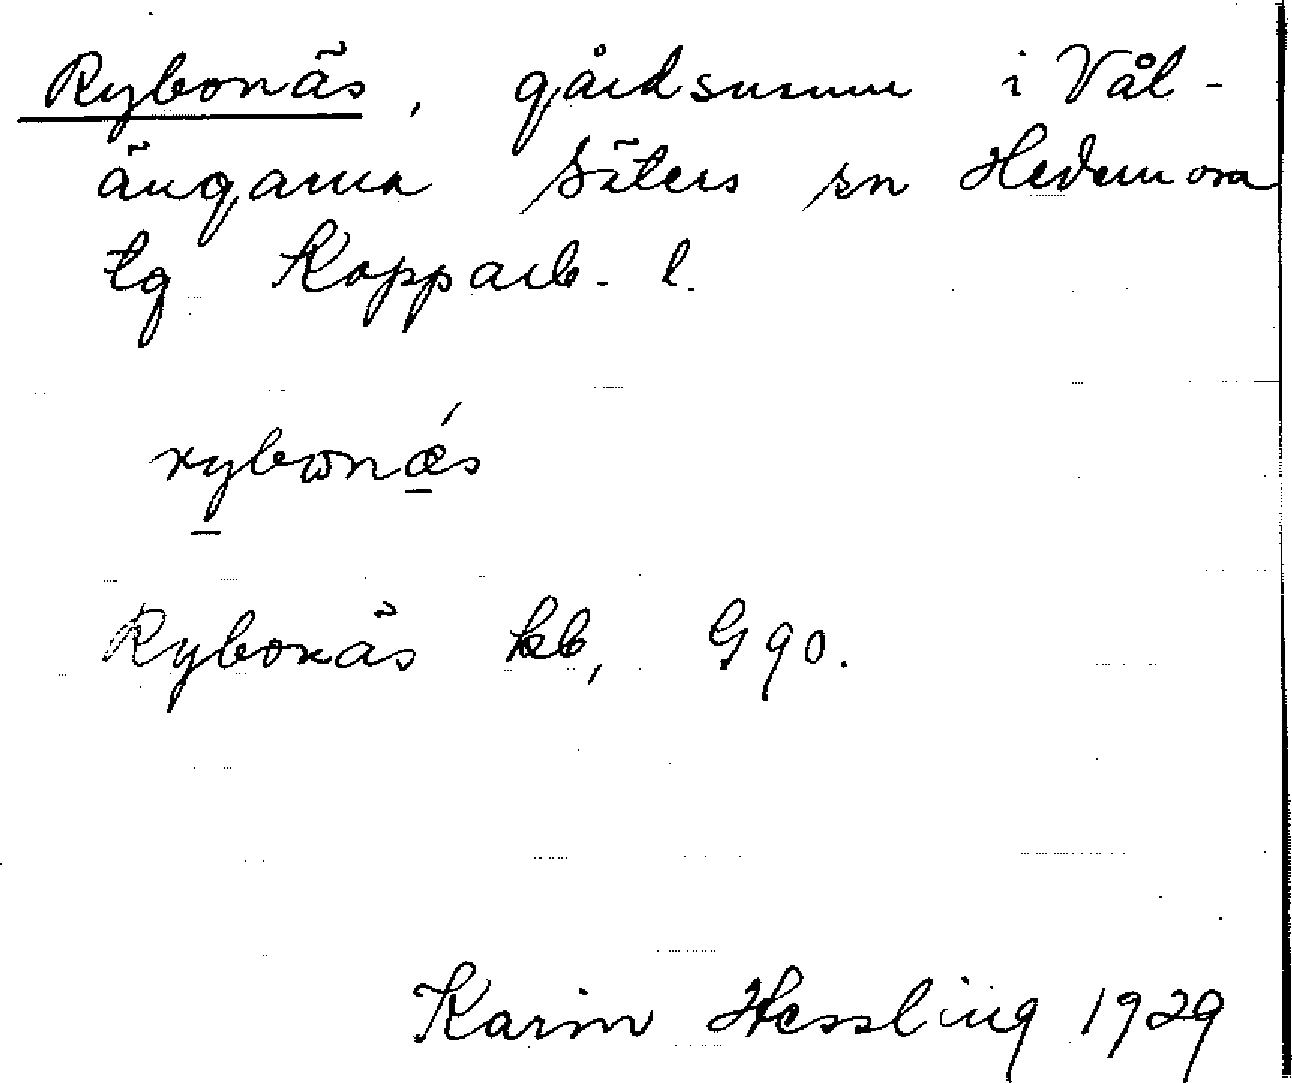 Rybonäs, gårdsnamn i Vål-
ängarna Säters sn Hedemora
tg Kopparb. l.
rybωnǽs
Rybonäs kb, G 90.
Karin Hessling 1929